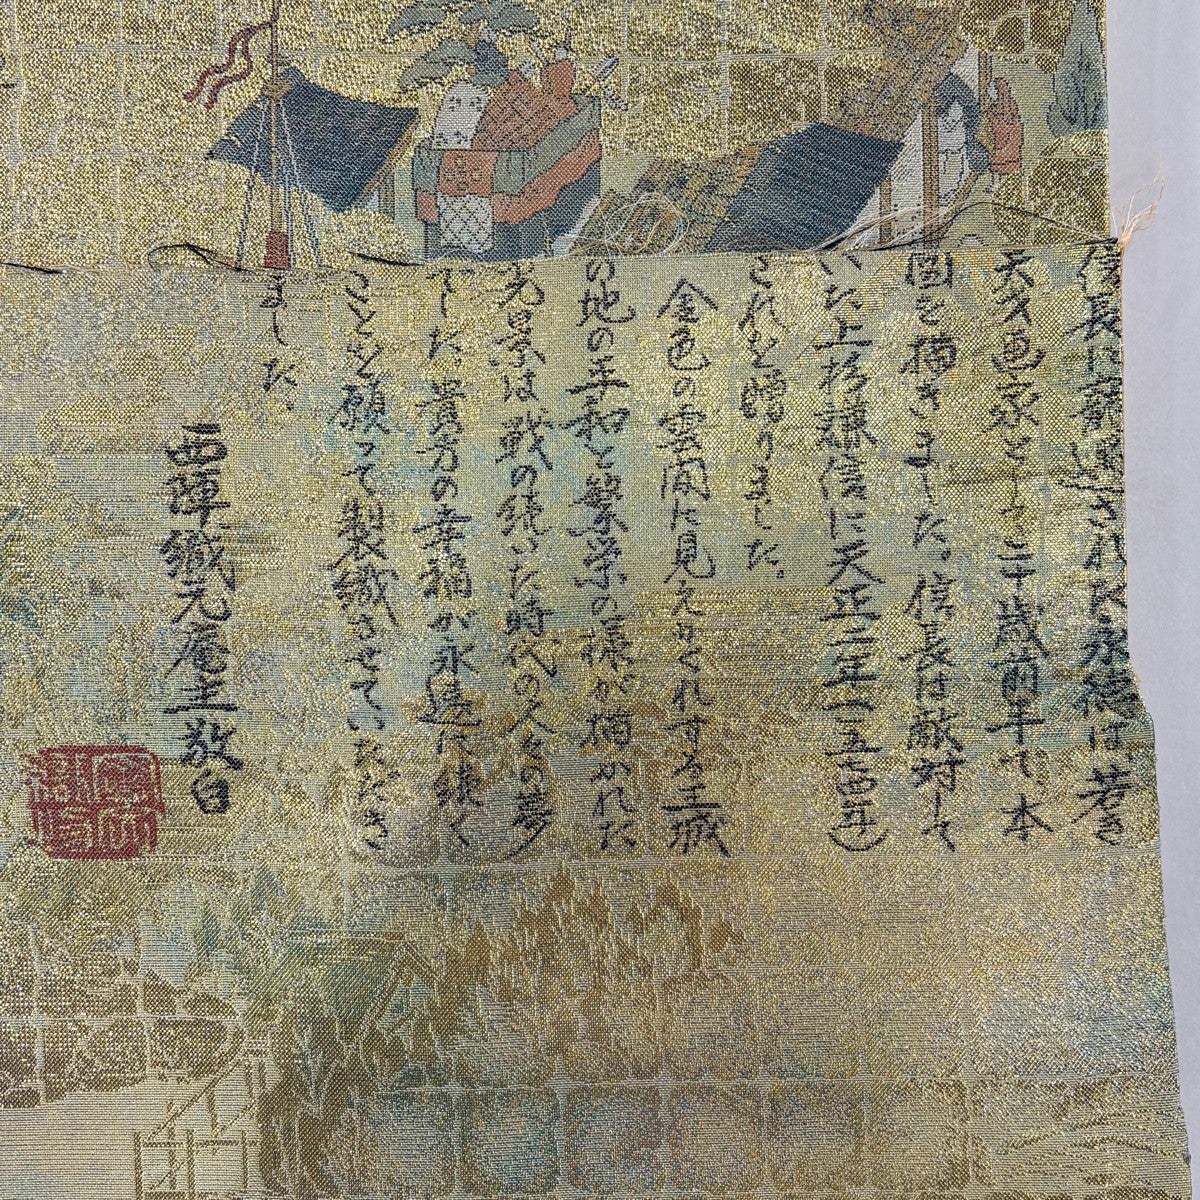 信長に寵遇された永徳は若き
天才画家として二十歳前半で本
図を描きました。信長は敵対して
いた上杉謙信に天正二年(一五七四年)
これを贈りました。
金色の雲間に見えかくれする王城
の地の平和と繁栄の様が描かれた
光景は戦の続いた時代の人々の夢
でした 貴方の幸福が永遠に続く
ことを願って製織させていただき
ました
西陣織元庵主敬白